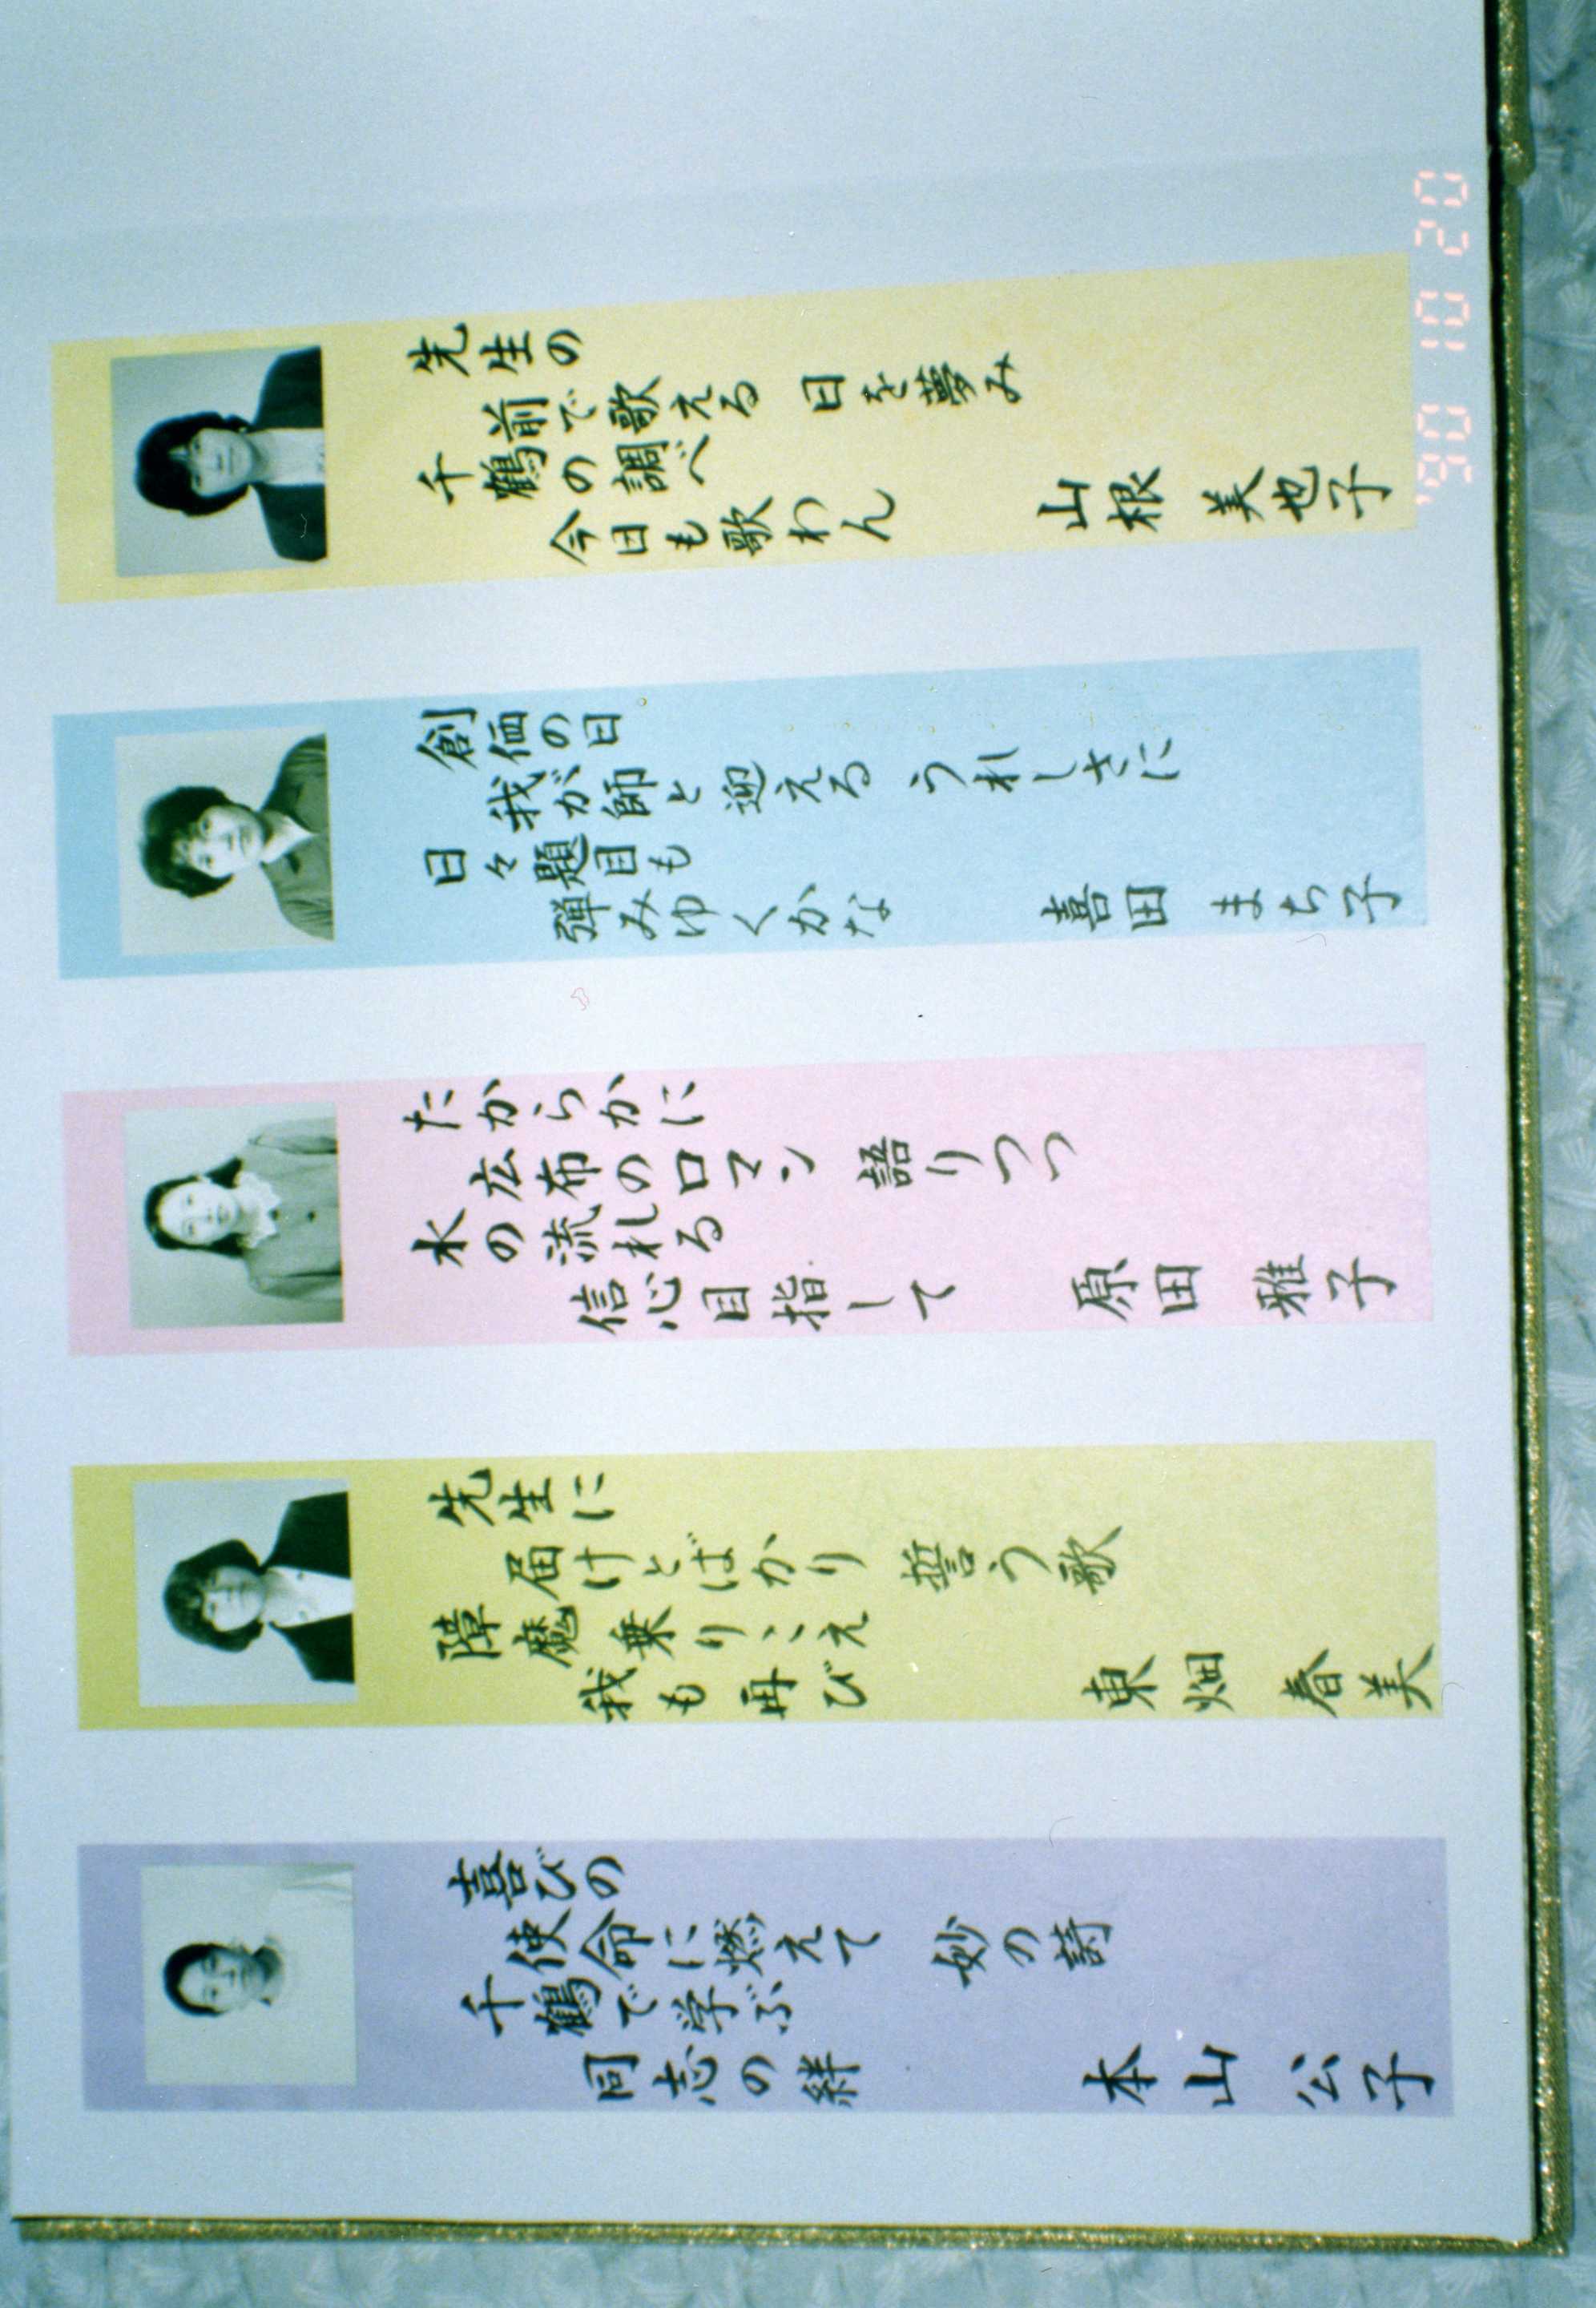 先生の
前で歌える 日を夢み
千鶴の調べ
今日も歌わん
山根 美也子
創価の日
我が師と迎える うれしさに
日々題目も
弾みゆくかな
喜田 まち子
たからかに
広布のロマン 語りつつ
水の流れる
信心目指して
原田 雅子
先生に
届けとばかり 誓う歌
障魔乗りこえ
我も再び
東畑 春美
喜びの
使命に燃えて 妙の詩
千鶴で学ぶ
同志の絆
本山 公子
'90 10 20